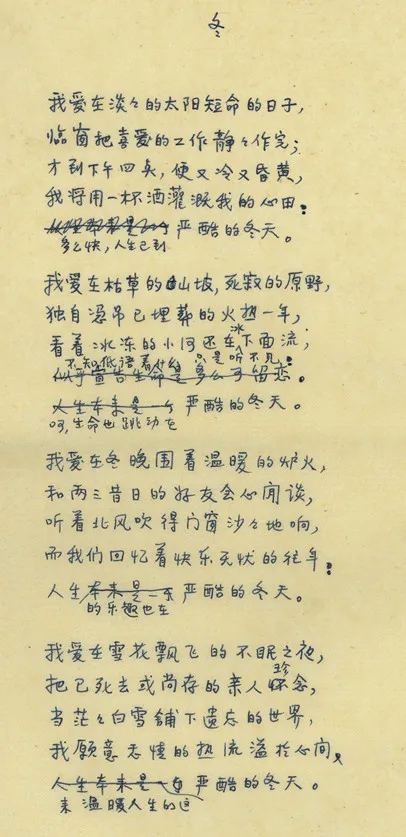 冬
我爱在淡々的太阳短命的日子，
临窗把喜爱的工作静々作完；
才到下午四点，便又冷又昏黄，
我将用一杯酒灌溉我的心田：
严酷的冬天。
多么快，人生已到
我爱在枯草的山坡，死寂的原野，
独自凭吊已埋葬的火热一年，
冰
看着冰冻的小河还在下面流，
不知低语着什么，只是听不见：
似乎宣告生命是多么可留恋。
人生本来是一个严酷的冬天。
呵，生命也跳动在
我爱在冬晚围着温暖的炉火，
和两三昔日的好友会心闲谈，
听着北风吹得门窗沙々地响，
而我们回忆着快乐无忧的往年：
人生本来是一个严酷的冬天。
的乐趣也在
我爱在雪花飘飞的不眠之夜，
珍
把已死去或尚存的亲人怀念，
当茫々白雪铺下遗忘的世界，
我愿意感情的热流溢于心间，
人生本来是一个严酷的冬天。
来温暖人生的这